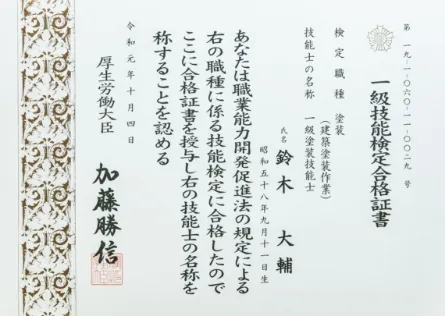 第 一九-一-〇六〇-一一-〇〇二九 号
一級技能検定合格証書
検定職種 塗装
(建築塗装作業)
技能士の名称 一級塗装技能士
氏名 鈴木 大輔
昭和五十八年九月十一日生
あなたは職業能力開発促進法の規定による
右の職種に係る技能検定に合格したので
ここに合格証書を授与し右の技能士の名称を
称することを認める
令和元年十月四日
厚生労働大臣 加藤勝信